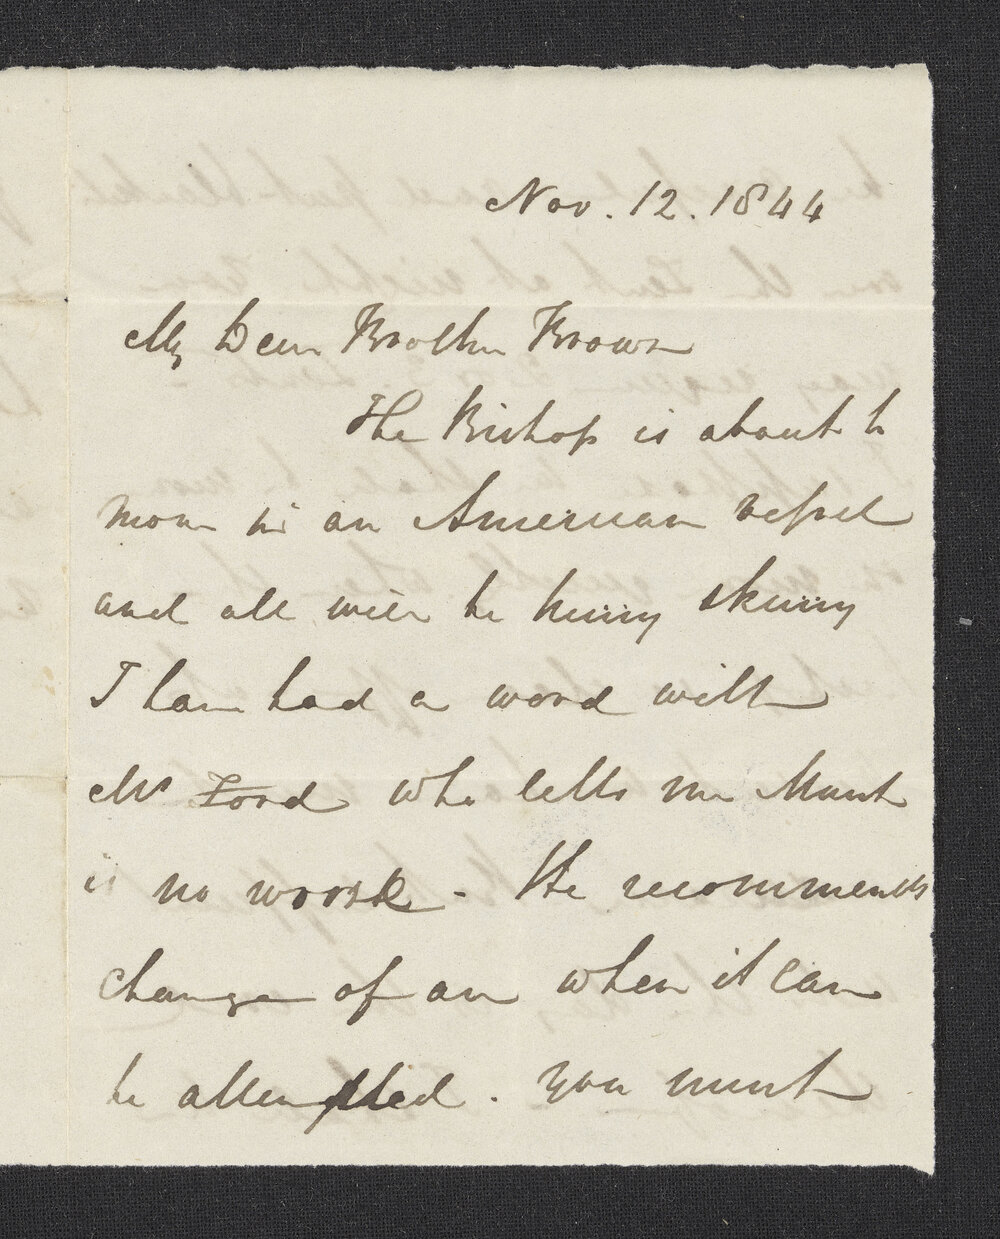 Nov. 12. 1844
My Dear Brother Brown
The Bishop is about to
move in an American vessel
and all will be hurry skurry
I have had a word with
Mr Ford who tells me Marsh
is no worse - He recommends
change of air when it can
be attempted. You must